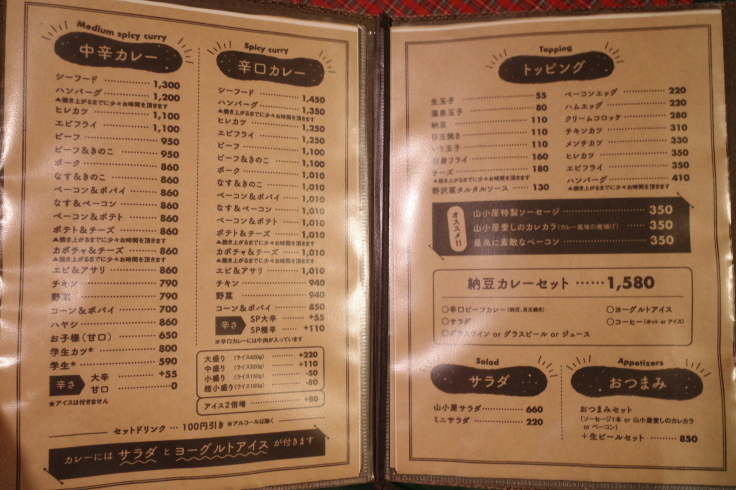 Medium spicy curry
中辛カレー
シーフード 1,300
ハンバーグ 1,200
▲焼き上がるまでに少々お時間を頂きます
ヒレカツ 1,100
エビフライ 1,100
ビーフ 950
ビーフ&きのこ 950
ポーク 860
なす&きのこ 860
ベーコン&ポパイ 860
なす&ベーコン 860
ベーコン&ポテト 860
ポテト&チーズ 860
▲焼き上がるまでに少々お時間を頂きます
カボチャ&チーズ 860
▲焼き上がるまでに少々お時間を頂きます
エビ&アサリ 860
チキン 790
野菜 790
コーン&ポパイ 700
ハヤシ 860
お子様(甘口) 650
学生カツ* 800
学生* 590
辛さ
大辛 +55
甘口 0
★アイスは付きません
Spicy curry
辛口カレー
シーフード 1,450
ハンバーグ 1,350
▲焼き上がるまでに少々お時間を頂きます
ヒレカツ 1,250
エビフライ 1,250
ビーフ 1,100
ビーフ&きのこ 1,100
ポーク 1,010
なす&きのこ 1,010
ベーコン&ポパイ 1,010
なす&ベーコン 1,010
ベーコン&ポテト 1,010
ポテト&チーズ 1,010
▲焼き上がるまでに少々お時間を頂きます
カボチャ&チーズ 1,010
▲焼き上がるまでに少々お時間を頂きます
エビ&アサリ 1,010
チキン 940
野菜 940
コーン&ポパイ 850
辛さ
SP大辛 +55
SP極辛 +110
※辛口カレーには牛肉が入っています
大盛り (ライス620g) +220
中盛り +110
小盛り -50
超小盛り -80
アイス2倍増 +80
セットドリンク … 100円引き ※アルコールは除く
カレーには サラダ と ヨーグルトアイス が付きます
Topping
トッピング
生玉子 55
温泉玉子 80
納豆 110
目玉焼き 110
いり玉子 110
白身フライ 160
チーズ 180
▲焼き上がるまでに少々お時間を頂きます
野沢菜タルタルソース 130
ベーコンエッグ 220
ハムエッグ 220
クリームコロッケ 280
チキンカツ 310
メンチカツ 330
ヒレカツ 350
エビフライ 350
ハンバーグ 410
▲焼き上がるまでに少々お時間を頂きます
オススメ!!
山小屋特製ソーセージ 350
山小屋愛しのカレカラ(カレー風味の唐揚げ) 350
最高に素敵なベーコン 350
納豆カレーセット ……1,580
○辛口ビーフカレー(納豆、目玉焼き)
○サラダ
○グラスワイン or グラスビール or ジュース
○ヨーグルトアイス
○コーヒー(ホット or アイス)
Salad
サラダ
山小屋サラダ 660
ミニサラダ 220
Appetizers
おつまみ
おつまみセット
(ソーセージ1本 or 山小屋愛しのカレカラ
or ベーコン)
+生ビールセット 850